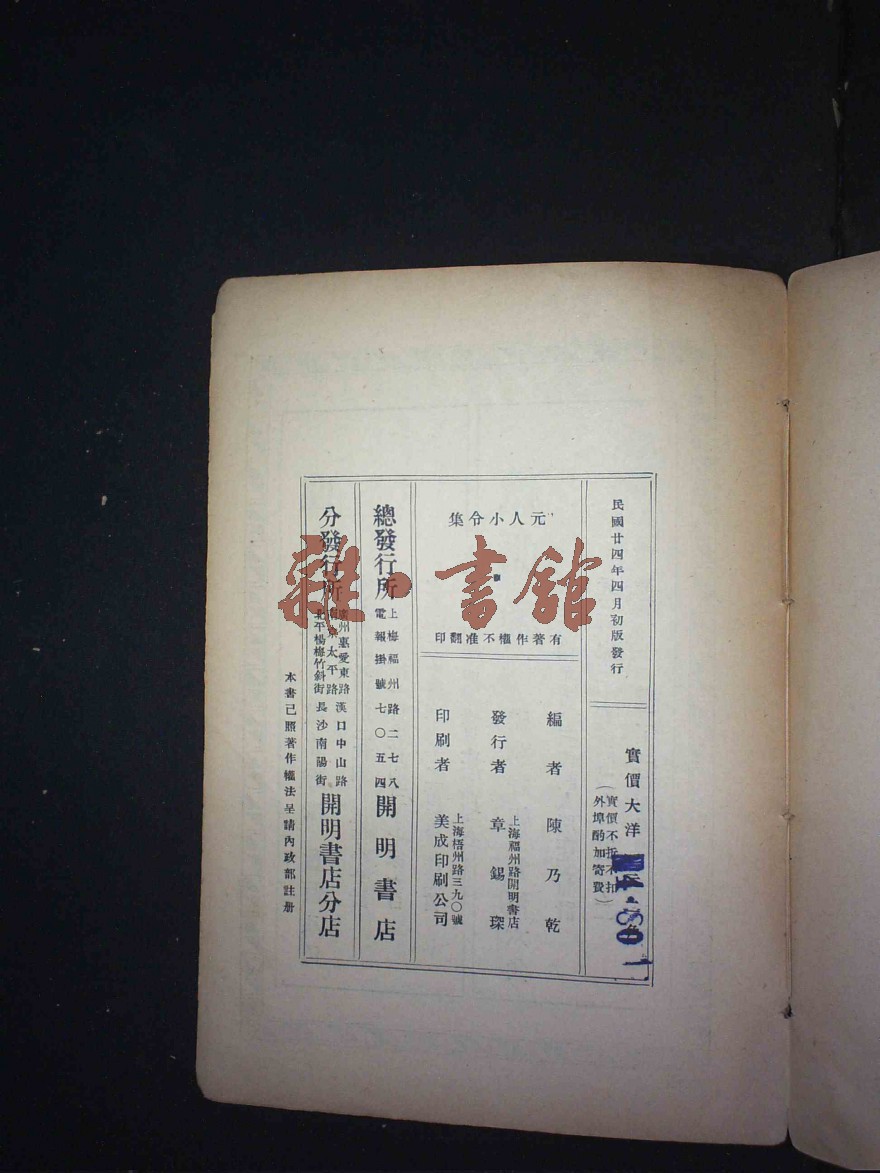 民國廿四年四月初版發行
實價大洋
（實價不折不扣
外埠酌加寄費）
元人小令集
有著作權不准翻印
編者 陳乃乾
發行者 章錫琛
上海福州路開明書店
印刷者 美成印刷公司
上海梧州路三九〇號
總發行所
上海福州路二七八
電報掛號七〇五四
開明書店
分發行所
廣州惠愛東路 漢口中山路
南京太平路 長沙南陽街
北平楊梅竹斜街
開明書店分店
本書已照著作權法呈請內政部註冊
雜·書館